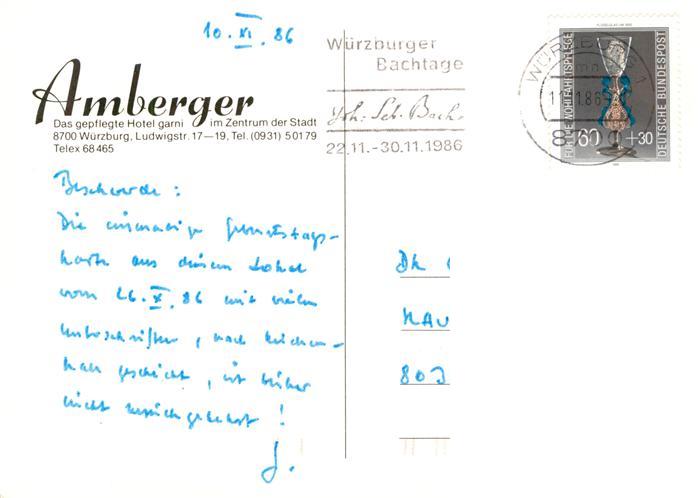 10. XI. 86
Amberger
Das gepflegte Hotel garni im Zentrum der Stadt
8700 Würzburg, Ludwigstr. 17—19, Tel. (0931) 50179
Telex 68465
Würzburger
Bachtage
Joh. Seb. Bach
22.11.-30.11.1986
WÜRZBURG 1
FÜR DIE WOHLFAHRTSPFLEGE
60 +30
DEUTSCHE BUNDESPOST
Beschwerde :
Die einmalige Geburtstags-
karte aus diesem Lokal
vom 26. X. 86 mit vielen
Unterschriften, nach
geschickt, ist bisher
nicht !
J.
DR
HAU
803